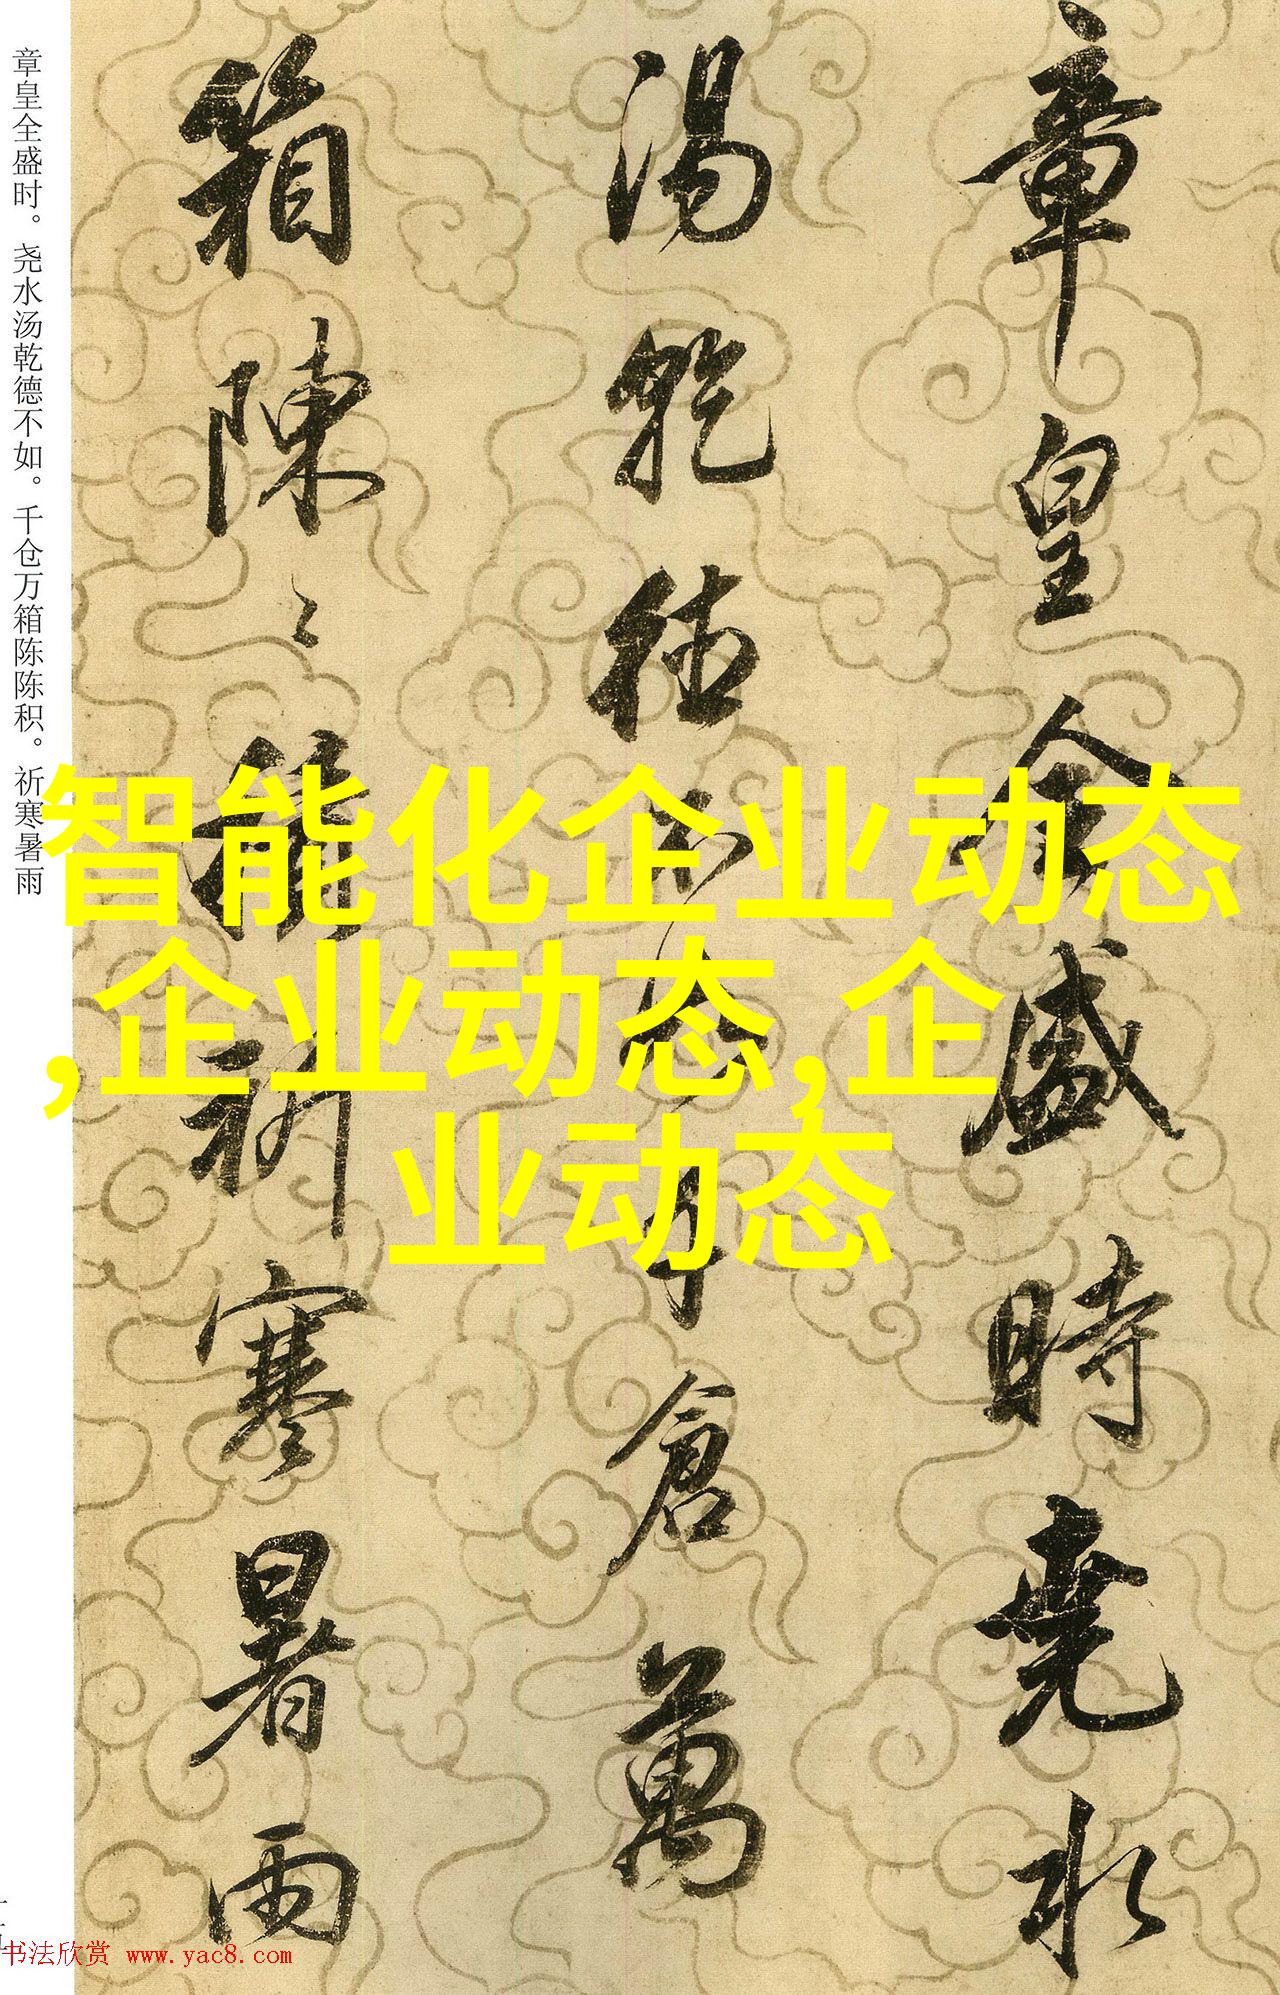 章皇全盛時堯水
湯乾德不如千倉萬
箱陳〻積祈寒暑雨
章皇全盛时。尧水汤乾德不如。千仓万箱陈陈积。祈寒暑雨
智能化企业动态
,企业动态,企
业动态
书法欣赏 www.yac8.com